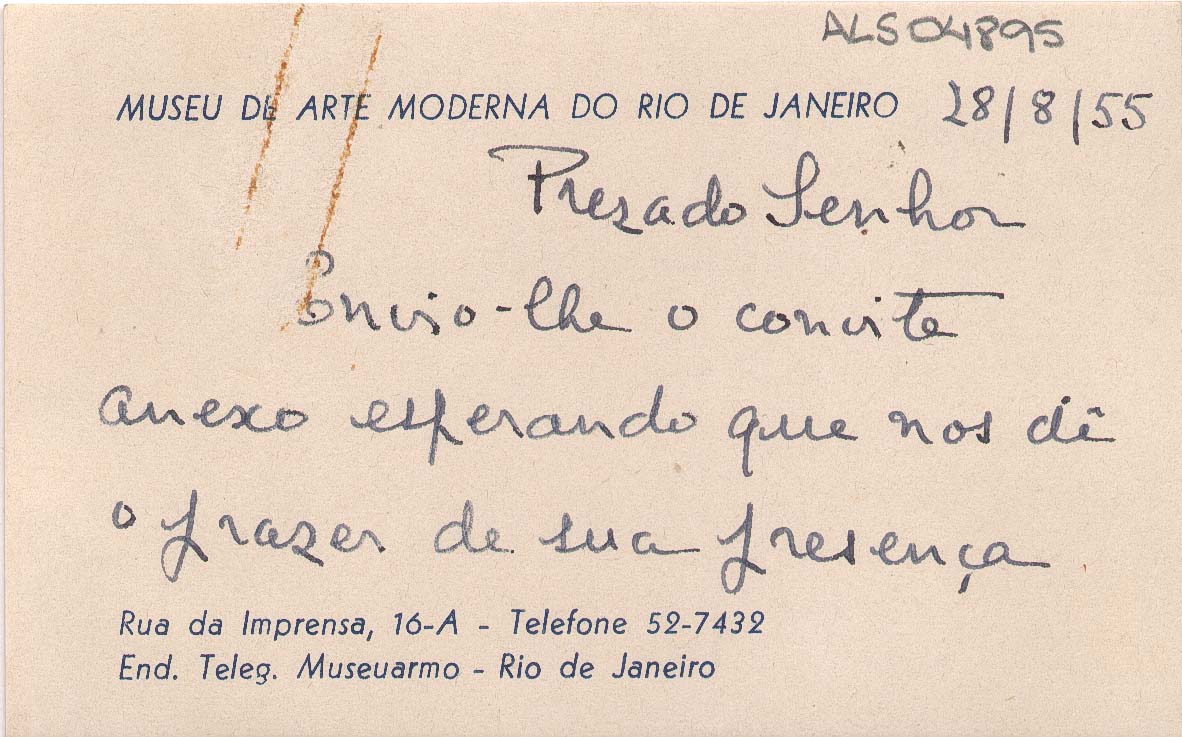 ALS04895
MUSEU DE ARTE MODERNA DO RIO DE JANEIRO 28/8/55
Prezado Senhor
Envio-lhe o convite
anexo esperando que nos dê
o prazer de sua presença
Rua da Imprensa, 16-A - Telefone 52-7432
End. Teleg. Museuarmo - Rio de Janeiro